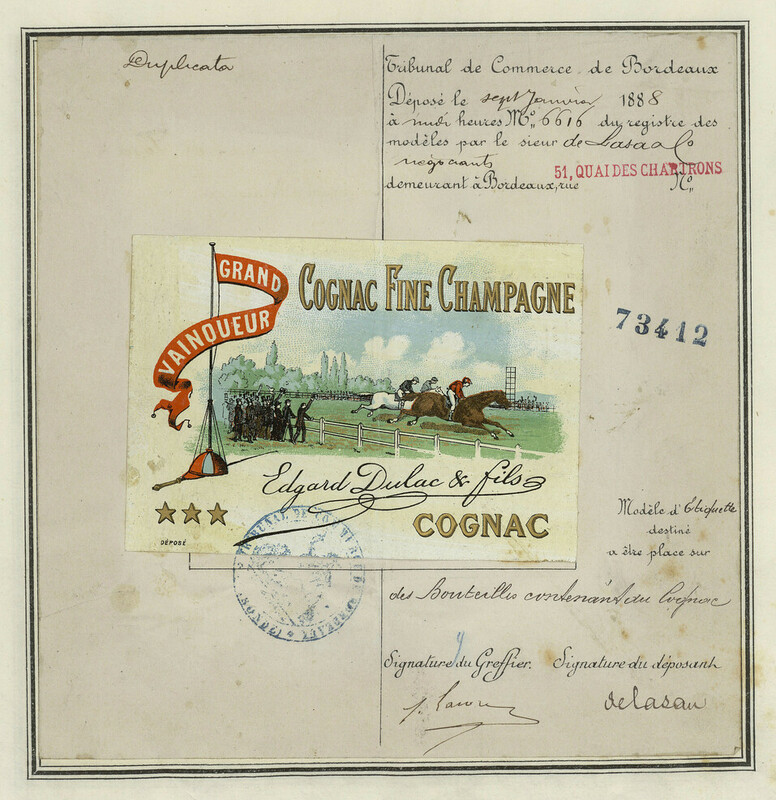 Duplicata
Tribunal de Commerce de Bordeaux
Déposé le sept Janvier 1888
à midi heures No 6616 du registre des
modèles par le sieur de Lasa & Co
négociants
51, QUAI DES CHARTRONS
demeurant à Bordeaux, rue No
GRAND
VAINQUEUR
COGNAC FINE CHAMPAGNE
73412
Edgard Dulac & fils
COGNAC
DÉPOSÉ
TRIBUNAL DE COMMERCE
Modèle d'Etiquette
destiné
a être place sur
des Bouteilles contenant du Cognac
Signature du Greffier. Signature du déposant
delasau